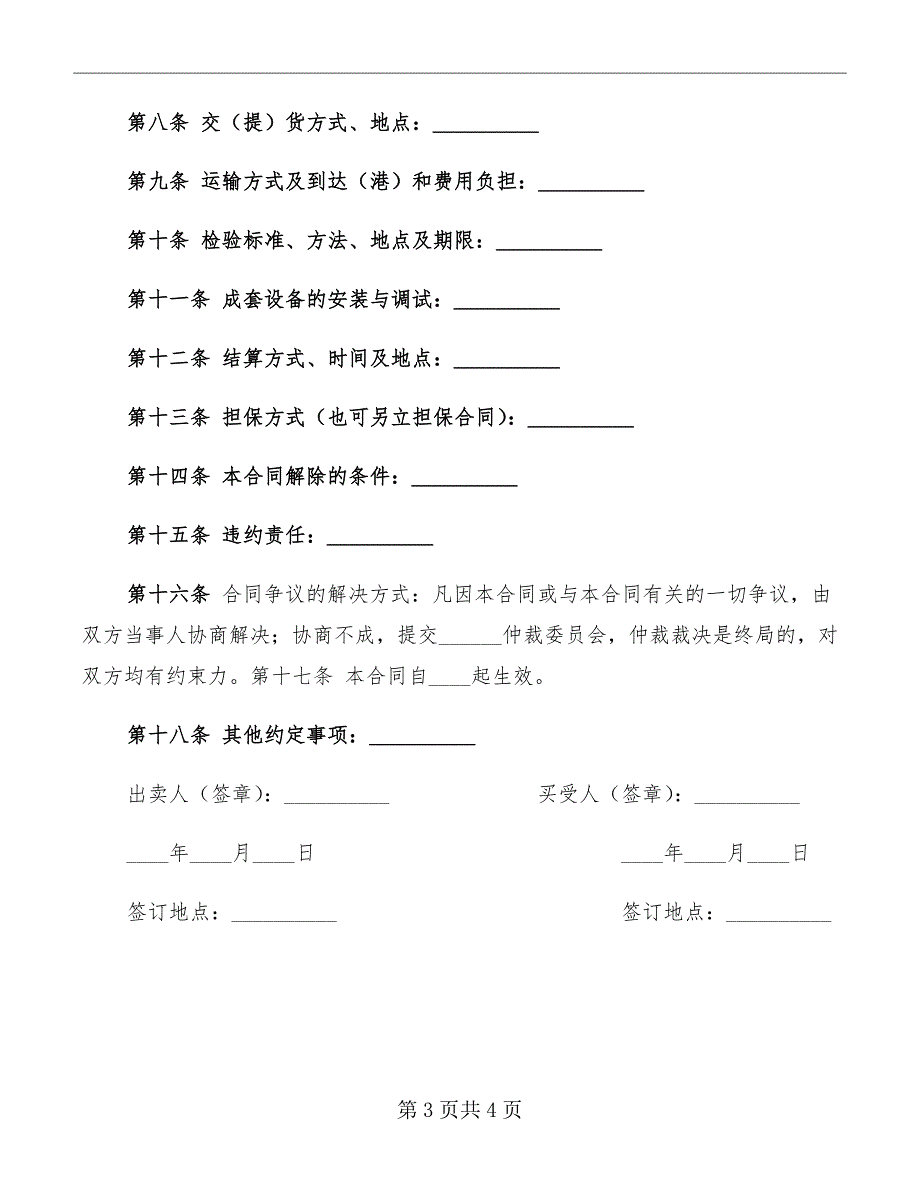 第八条 交（提）货方式、地点：__________
第九条 运输方式及到达（港）和费用负担：__________
第十条 检验标准、方法、地点及期限：__________
第十一条 成套设备的安装与调试：__________
第十二条 结算方式、时间及地点：__________
第十三条 担保方式（也可另立担保合同）：__________
第十四条 本合同解除的条件：__________
第十五条 违约责任：__________
第十六条 合同争议的解决方式：凡因本合同或与本合同有关的一切争议，由
双方当事人协商解决；协商不成，提交______仲裁委员会，仲裁裁决是终局的，对
双方均有约束力。第十七条 本合同自____起生效。
第十八条 其他约定事项：__________
出卖人（签章）：__________ 买受人（签章）：__________
____年____月____日 ____年____月____日
签订地点：__________ 签订地点：__________
第 3 页共 4 页